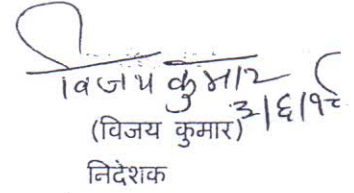 विजय कुमार
३।६।१८
(विजय कुमार)
निदेशक